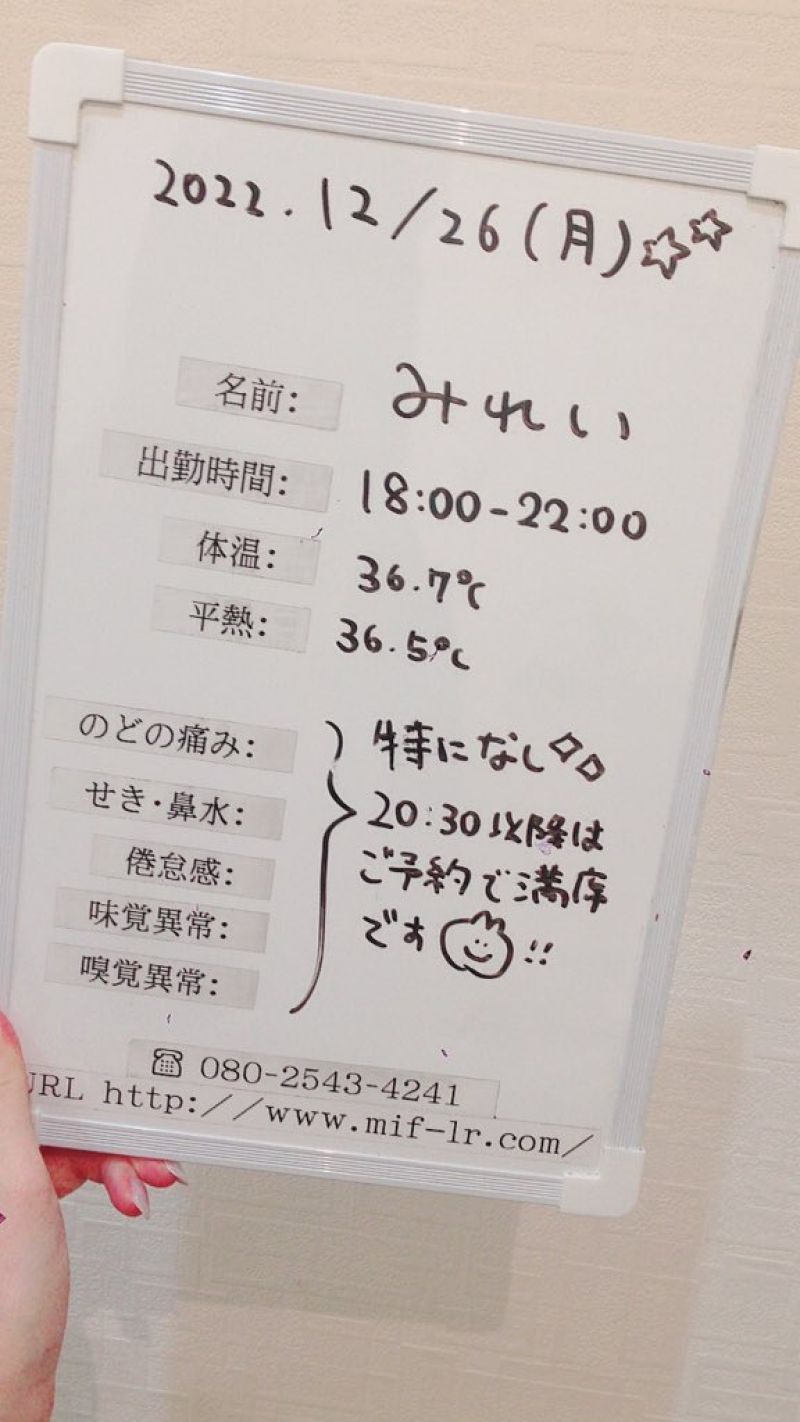 2022.12/26(月)☆☆
名前: みれい
出勤時間: 18:00-22:00
体温: 36.7℃
平熱: 36.5℃
のどの痛み: 特になし
せき・鼻水: 20:30以降は
倦怠感: ご予約で満席
味覚異常: です!!
嗅覚異常:
☎ 080-2543-4241
URL http://www.mif-lr.com/